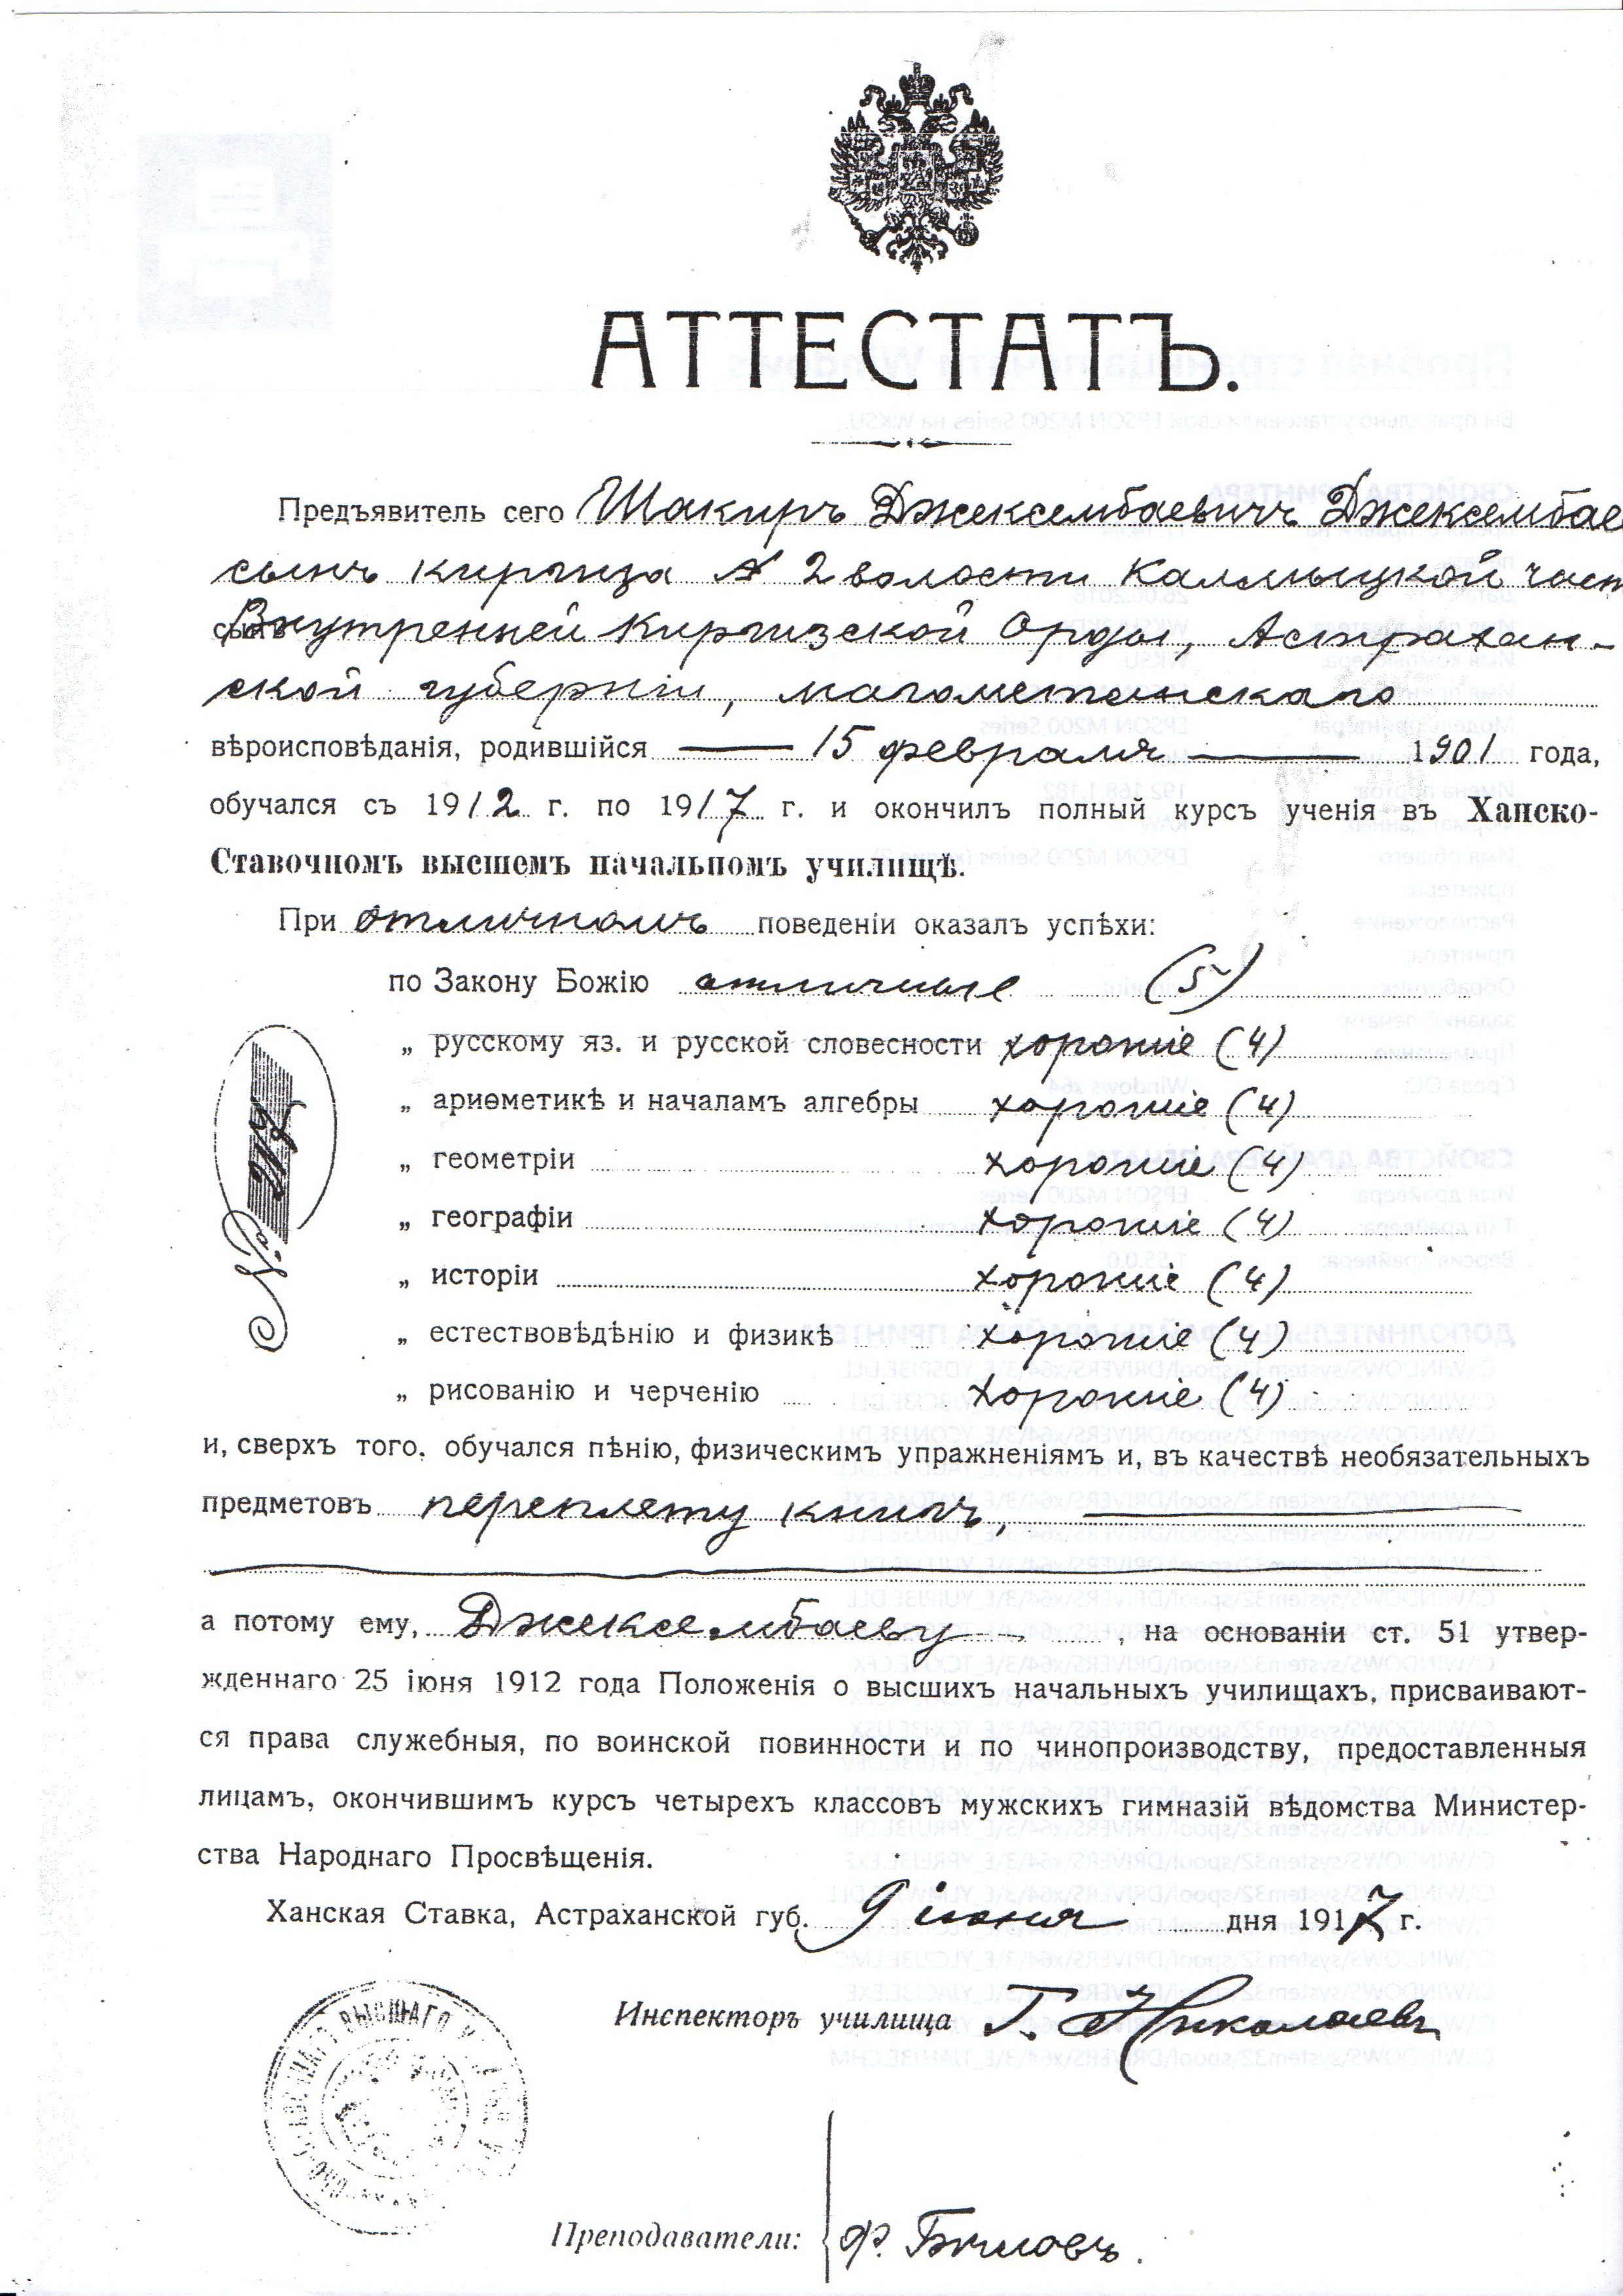 АТТЕСТАТЪ.
Предъявитель сего Шакиръ Джексембаевичъ Джексембае
сынъ киргиза № 2 волости Калмыцкой част
сынъ Внутренней Киргизской Орды, Астрахан-
ской губерніи, магометанскаго
вѣроисповѣданія, родившійся 15 февраля 1901 года,
обучался съ 1912 г. по 1917 г. и окончилъ полный курсъ ученія въ Ханско-
Ставочномъ высшемъ начальномъ училищѣ.
При отличномъ поведеніи оказалъ успѣхи:
по Закону Божію отличные (5)
„ русскому яз. и русской словесности хорошіе (4)
„ ариѳметикѣ и началамъ алгебры хорошіе (4)
„ геометріи хорошіе (4)
„ географіи хорошіе (4)
„ исторіи хорошіе (4)
„ естествовѣдѣнію и физикѣ хорошіе (4)
„ рисованію и черченію хорошіе (4)
№
и, сверхъ того, обучался пѣнію, физическимъ упражненіямъ и, въ качествѣ необязательныхъ
предметовъ переплету книгъ,
а потому ему, Джексембаеву, на основаніи ст. 51 утвер-
жденнаго 25 іюня 1912 года Положенія о высшихъ начальныхъ училищахъ, присваивают-
ся права служебныя, по воинской повинности и по чинопроизводству, предоставленныя
лицамъ, окончившимъ курсъ четырехъ классовъ мужскихъ гимназій вѣдомства Министер-
ства Народнаго Просвѣщенія.
Ханская Ставка, Астраханской губ. 9 іюня дня 1917 г.
Инспекторъ училища Г. Николаевъ
ВЫСШАГО
Преподаватели: Ф.